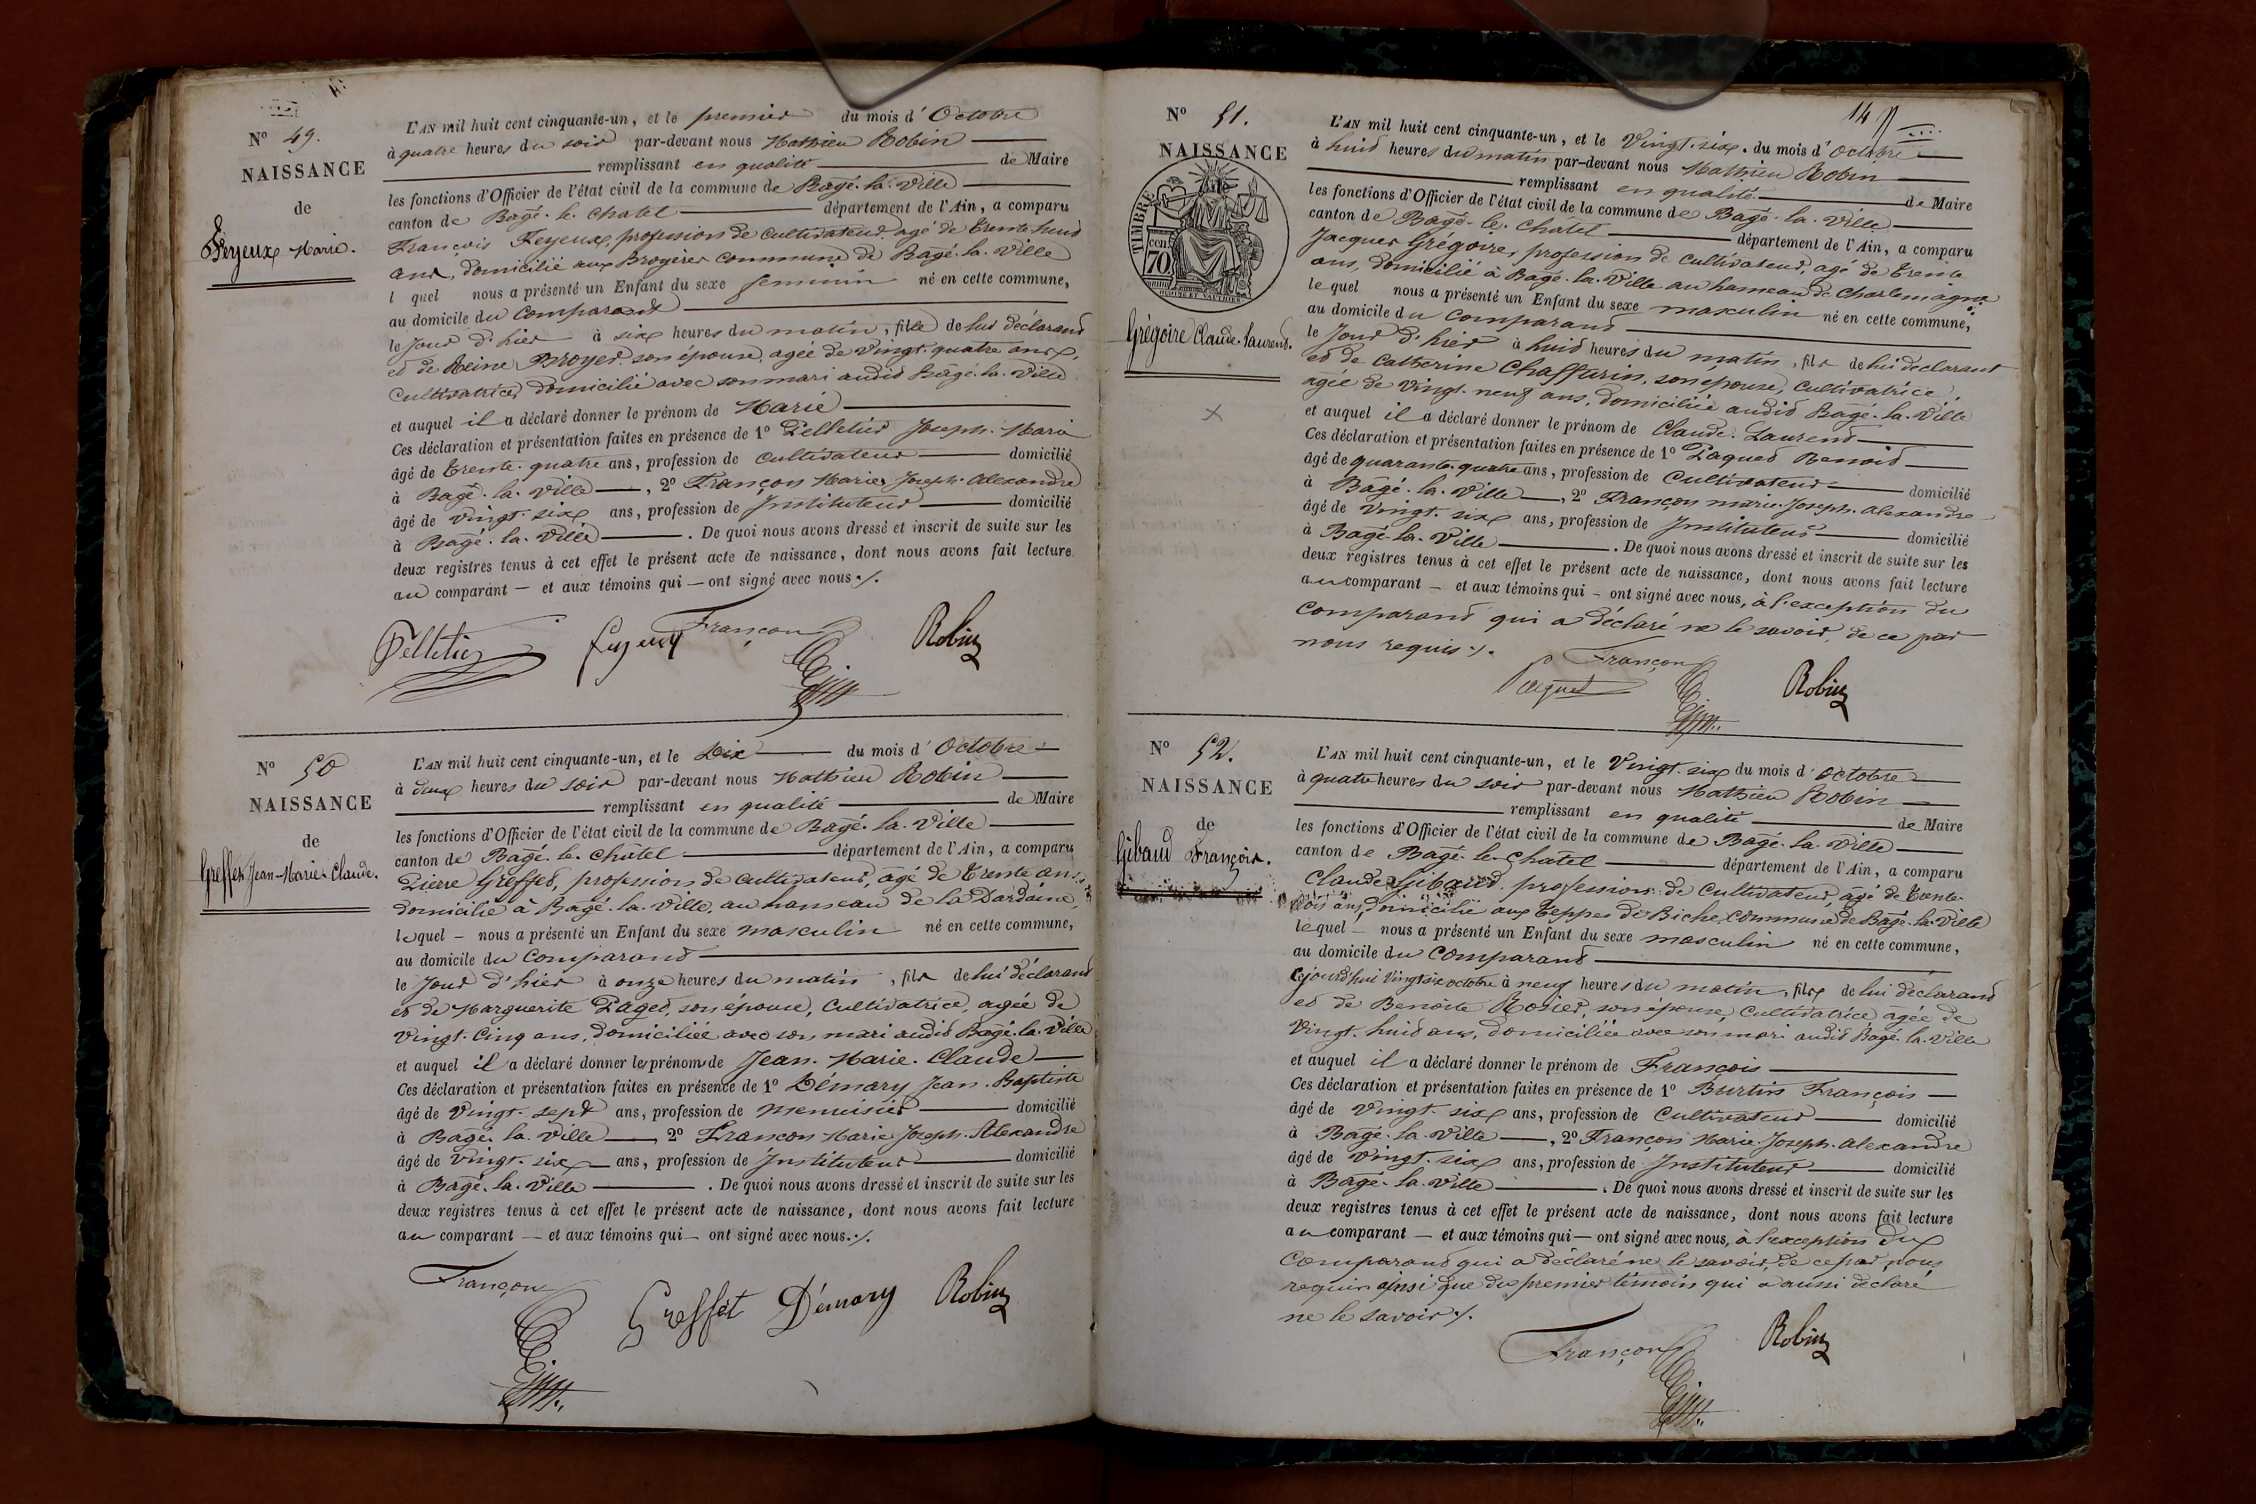 N° 49.
NAISSANCE
de
Feyeux Marie.
L'AN mil huit cent cinquante-un, et le premier du mois d'Octobre
à quatre heures du soir par-devant nous Mathieu Robin
remplissant en qualité de Maire
les fonctions d'Officier de l'état civil de la commune de Bagé-la-Ville
canton de Bagé-le-Chatel département de l'Ain, a comparu
François Feyeux, profession de cultivateur, agé de Trente huit
ans, domicilié aux Broyeres commune de Bagé-la-Ville
l quel nous a présenté un Enfant du sexe feminin né en cette commune,
au domicile du Comparant
le jour d'hier à six heures du matin, fille de lui déclarant
et de Reine Broyer son épouse, agée de Vingt-quatre ans,
cultivatrice, domicilié avec son mari audit Bagé-la-Ville
et auquel il a déclaré donner le prénom de Marie
Ces déclaration et présentation faites en présence de 1° Pelletier Joseph-Marie
âgé de Trente-quatre ans, profession de Cultivateur domicilié
à Bagé-la-Ville, 2° Françon Marie Joseph-Alexandre
âgé de vingt-six ans, profession de Instituteur domicilié
à Bagé-la-Ville. De quoi nous avons dressé et inscrit de suite sur les
deux registres tenus à cet effet le présent acte de naissance, dont nous avons fait lecture
au comparant — et aux témoins qui — ont signé avec nous./.
Pelletier Feyeux Françon Robin
N° 50
NAISSANCE
de
Greffet Jean-Marie-Claude.
L'AN mil huit cent cinquante-un, et le Dix du mois d'Octobre
à deux heures du soir par-devant nous Mathieu Robin
remplissant en qualité de Maire
les fonctions d'Officier de l'état civil de la commune de Bagé-la-Ville
canton de Bagé-le-Châtel département de l'Ain, a comparu
Pierre Greffet, profession de cultivateur, agé de Trente ans,
domicilié à Bagé-la-Ville, au hameau de la Dardaine,
lequel — nous a présenté un Enfant du sexe masculin né en cette commune,
au domicile du Comparant
le Jour d'hier à onze heures du matin, fils de lui déclarant
et de Marguerite Paget, son épouse, Cultivatrice, agée de
vingt-Cinq ans, domiciliée avec son mari audit Bagé-la-Ville
et auquel il a déclaré donner les prénoms de Jean-Marie-Claude
Ces déclaration et présentation faites en présence de 1° Démary Jean-Baptiste
âgé de Vingt-sept ans, profession de Menuisier domicilié
à Bagé-la-Ville, 2° Françon Marie Joseph-Alexandre
âgé de vingt-six ans, profession de Instituteur domicilié
à Bagé-la-Ville. De quoi nous avons dressé et inscrit de suite sur les
deux registres tenus à cet effet le présent acte de naissance, dont nous avons fait lecture
au comparant — et aux témoins qui — ont signé avec nous./.
Françon Greffet Démary Robin
14
N° 51.
NAISSANCE
TIMBRE
70
Grégoire Claude-Laurent.
L'AN mil huit cent cinquante-un, et le Vingt-six du mois d'Octobre
à huit heures du matin par-devant nous Mathieu Robin
remplissant en qualité de Maire
les fonctions d'Officier de l'état civil de la commune de Bagé-la-Ville
canton de Bagé-le-Châtel département de l'Ain, a comparu
Jacques Grégoire, profession de cultivateur, agé de Trente
ans, domicilié à Bagé-la-Ville au hameau de Charlemagne
lequel nous a présenté un Enfant du sexe masculin né en cette commune,
au domicile du Comparant
le Jour d'hier à huit heures du matin, fils de lui déclarant
et de Catherine Chaffurin, son épouse, Cultivatrice,
agée de vingt-neuf ans, domiciliée audit Bagé-la-Ville
et auquel il a déclaré donner le prénom de Claude-Laurent
Ces déclaration et présentation faites en présence de 1° Paquet Benoit
âgé de quarante-quatre ans, profession de Cultivateur domicilié
à Bagé-la-Ville, 2° Françon Marie-Joseph-Alexandre
âgé de Vingt-six ans, profession de Instituteur domicilié
à Bagé-la-Ville. De quoi nous avons dressé et inscrit de suite sur les
deux registres tenus à cet effet le présent acte de naissance, dont nous avons fait lecture
au comparant — et aux témoins qui — ont signé avec nous, à l'exception du
Comparant qui a déclaré ne le savoir, de ce par
nous requis./.
Paquet Françon Robin
N° 52.
NAISSANCE
de
Gibaud François.
L'AN mil huit cent cinquante-un, et le Vingt-six du mois d'Octobre
à quatre heures du soir par-devant nous Mathieu Robin
remplissant en qualité de Maire
les fonctions d'Officier de l'état civil de la commune de Bagé-la-Ville
canton de Bagé-le-Chatel département de l'Ain, a comparu
Claude Gibaud, profession de Cultivateur, âgé de Trente-
trois ans, domicilié aux Teppes de Biche, Commune de Bagé-la-Ville
lequel — nous a présenté un Enfant du sexe masculin né en cette commune,
au domicile du Comparant
Cejourd'hui Vingt six octobre à neuf heures du matin, fils de lui déclarant
et de Benoite Rosier, son épouse, Cultivatrice agée de
Vingt-huit ans, domiciliée avec son mari audit Bagé-la-Ville
et auquel il a déclaré donner le prénom de François
Ces déclaration et présentation faites en présence de 1° Burtin François
âgé de Vingt-six ans, profession de Cultivateur domicilié
à Bagé-la-Ville, 2° Françon Marie-Joseph-Alexandre
âgé de Vingt-six ans, profession de Instituteur domicilié
à Bagé-la-Ville. De quoi nous avons dressé et inscrit de suite sur les
deux registres tenus à cet effet le présent acte de naissance, dont nous avons fait lecture
au comparant — et aux témoins qui — ont signé avec nous, à l'exception du
Comparant qui a déclaré ne le savoir, de ce par nous
requis ainsi que du premier témoin qui a aussi déclaré
ne le savoir./.
Françon Robin